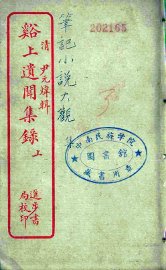 清 尹元煒輯
谿上遺聞集錄 上
進步書局校印
筆記小說大觀
202165
南民族學院
圖書館
藏書專用